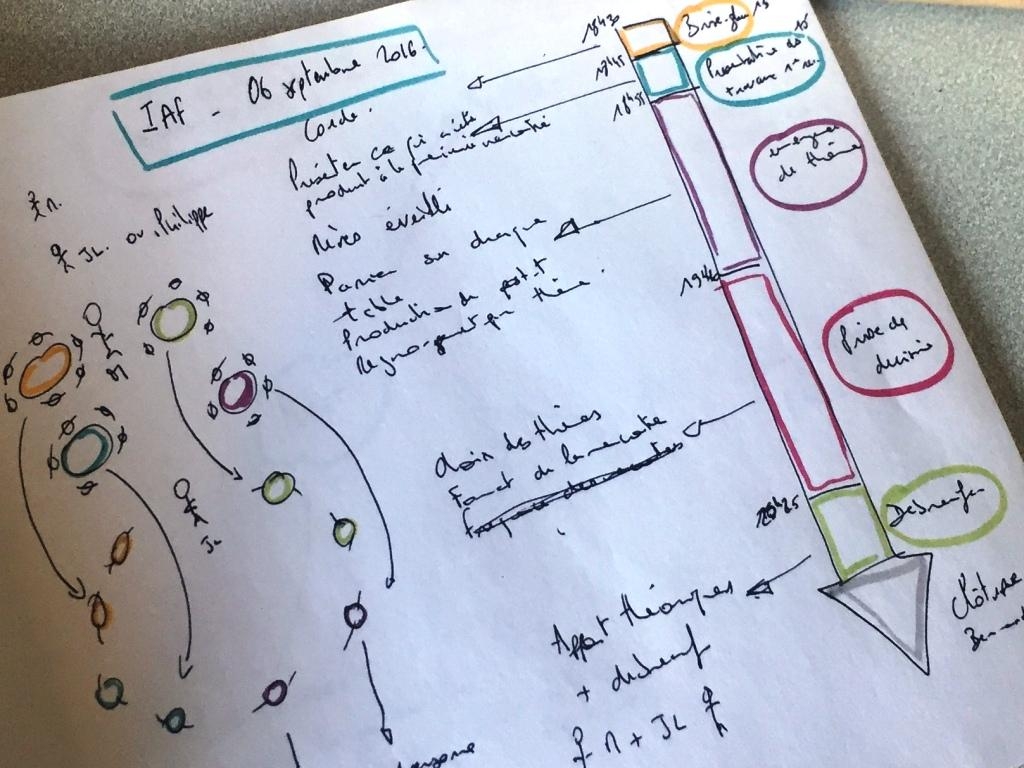 IAF - 06 septembre 2016
18h30
Brise-glace 15
Corde
18h45
Présentation des 15
travaux 1ère
18h55
Présenter ce qui a été
produit à la première rencontre
de thème
Rêves éveillé
JL. ou Philippe
Panier sur chaque
table
Production de post-it
Regroupement par thème
19h40
Prise de
décision
Choix des thèmes
Format de la rencontre
20h25
Debrief
JL
Apport théoriques
+ debrief
M + JL
Clôture